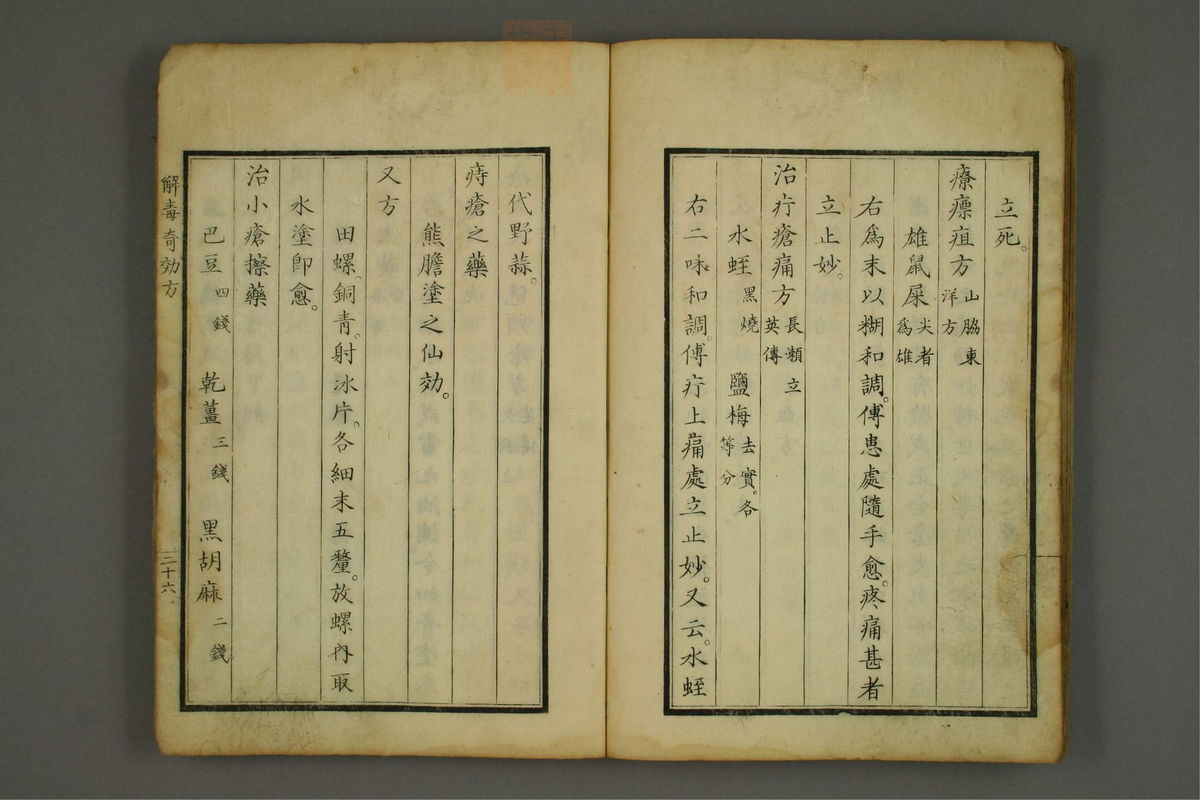 立死。
療瘭疽方 山脇東洋方
雄鼠屎 尖者為雄
右為末以糊和調。傅患處隨手愈。疼痛甚者
立止妙。
治疔瘡痛方 長瀬立英傳
水蛭 黑燒 鹽梅 去實。各等分
右二味和調。傅疔上痛處立止妙。又云。水蛭
代野蒜。
痔瘡之藥
熊膽塗之仙効。
又方
田螺。銅青。射冰片。各細末五釐。放螺內取
水塗卽愈。
治小瘡擦藥
巴豆 四錢 乾薑 三錢 黑胡麻 二錢
解毒奇効方
三十六